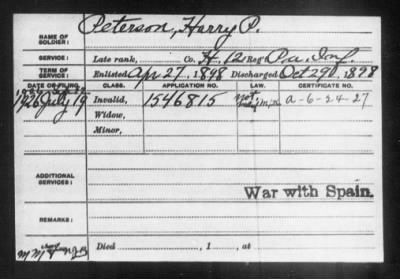 Peterson, Harry P.
NAME OF SOLDIER:
SERVICE: Late rank, Co. H. 12 Reg't Pa. Inf.
TERM OF SERVICE: Enlisted Apr 27, 1898 Discharged Oct 29, 1898
DATE OF FILING. CLASS. APPLICATION NO. LAW. CERTIFICATE NO.
1926 July 19 Invalid, 1546815 a-6-24-27
Widow,
Minor,
ADDITIONAL SERVICES:
War with Spain.
REMARKS:
Died , 1 , at